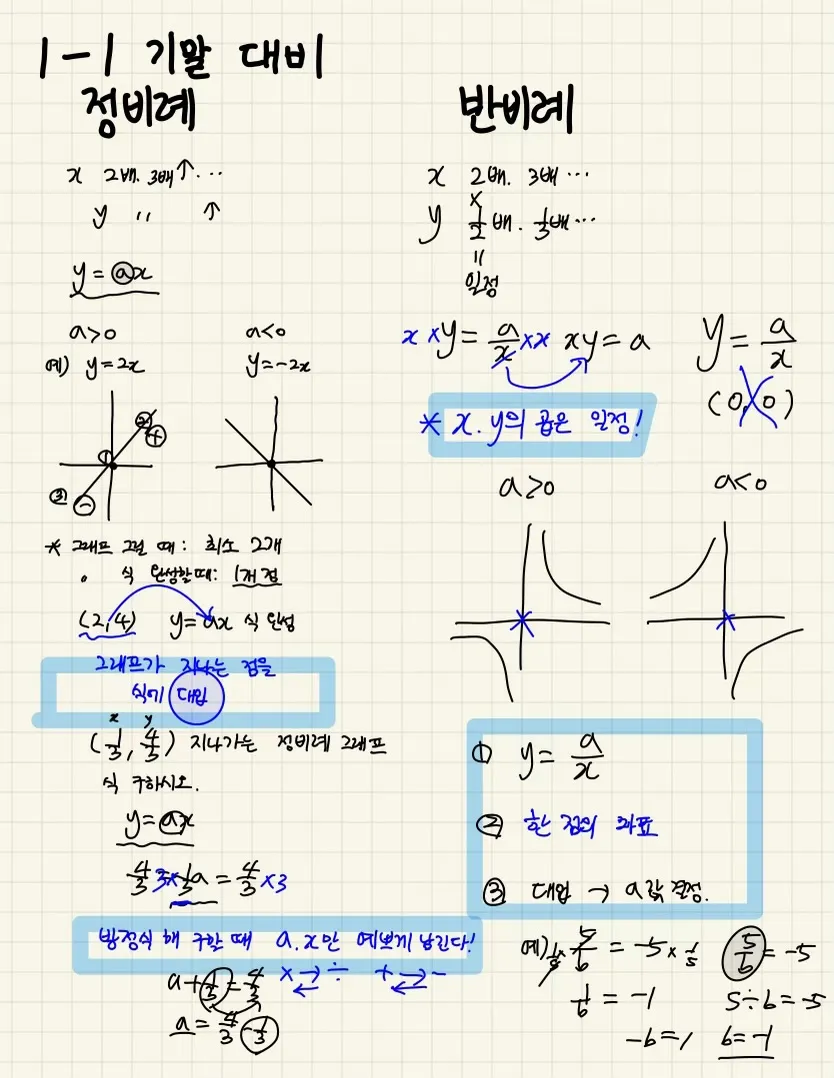 1-1 기말 대비
정비례
x 2배. 3배↑...
y 〃 ↑
y = ax
a>0 a<0
예) y=2x y=-2x
① ② +
③ -
* 그래프 그릴 때: 최소 2개
식 완성할때: 1개 점
(2,4) y=ax 식 완성
그래프가 지나는 점을
식에 대입
x y
(1/3, 4/3) 지나가는 정비례 그래프
식 구하시오.
y=ax
4/3 3× 1/3 a = 4/3 ×3
방정식 해 구할 때 a.x만 예쁘게 남긴다!
a+1/3=4/3 ×→÷ +→-
a=4/3-1/3
반비례
x 2배. 3배...
×
y 1/2배. 1/3배...
=
일정
x×y=a/x×x xy=a y=a/x
(0,0)
* x.y의 곱은 일정!
a>0 a<0
① y=a/x
② 한 점의 좌표
③ 대입 → a값 결정.
예) 1/5× 5/b = -5×1/5 5/b=-5
1/b=-1 5÷b=-5
-b=1 b=-1